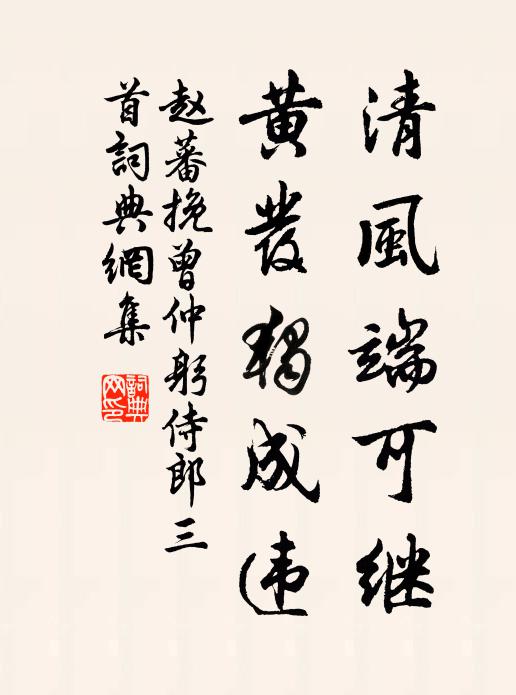 清風端可继
黄发獨成违
赵蕃挽曾仲躬侍郎三
首詞典網集
詞典网印